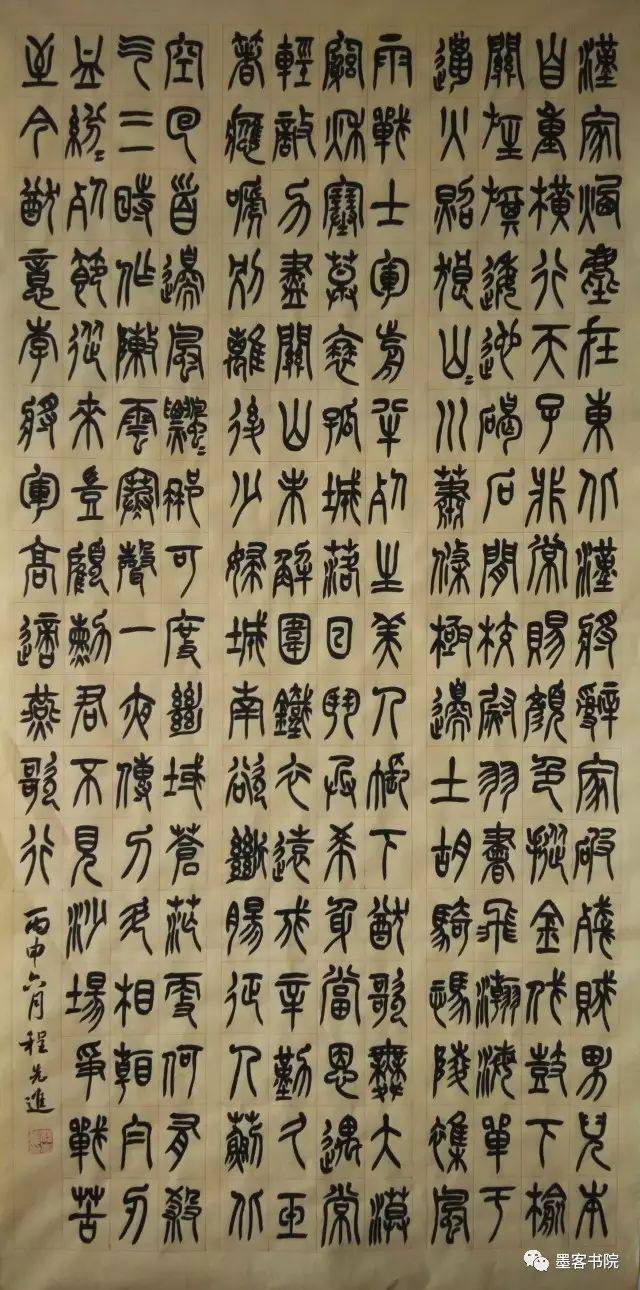 漢家煙塵在東北漢將辭家破殘賊男兒本
自重橫行天子非常賜顏色摐金伐鼓下榆
關旌旗逶迤碣石間校尉羽書飛瀚海單于
獵火照狼山〻川蕭條極邊土胡騎憑陵雜風
雨戰士軍前半死生美人帳下猶歌舞大漠
窮秋塞草衰孤城落日鬥兵希身當恩遇常
輕敵力盡關山未解圍鐵衣遠戍辛勤久玉
箸應啼別離後少婦城南欲斷腸征人薊北
空回首邊風飄〻那可度絕域蒼茫更何有殺
氣三時作陣雲寒聲一夜傳刁斗相看白刃
血紛〻死節從來豈顧勳君不見沙場爭戰苦
至今猶憶李將軍高適燕歌行
丙申六月程先進
墨客书院